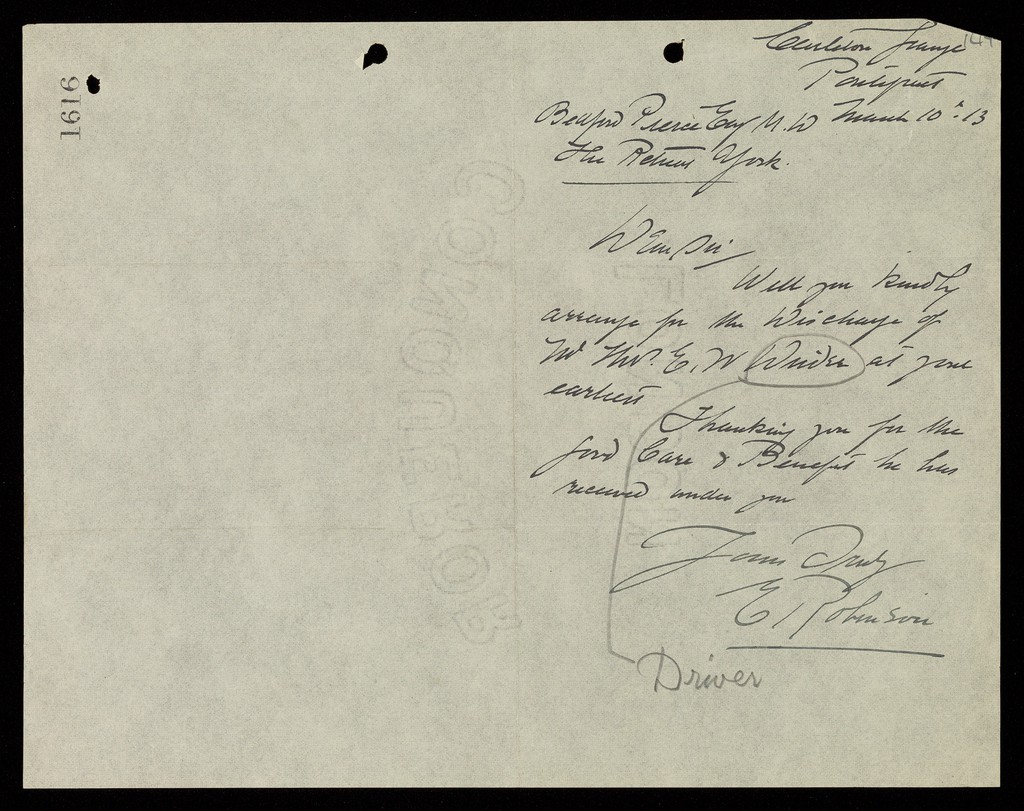 1616
149
Carleton Grange
Pontefract
March 10th 13
Bedford Pierce Esq M.D
The Retreat York.
Dear Sir
Will you kindly
arrange for the Discharge of
Mr Thos. E. W Driver at your
earliest
Thanking you for the
good Care & Benefit he has
received under you
Yours Truly
E Robinson
Driver
CONQUEROR